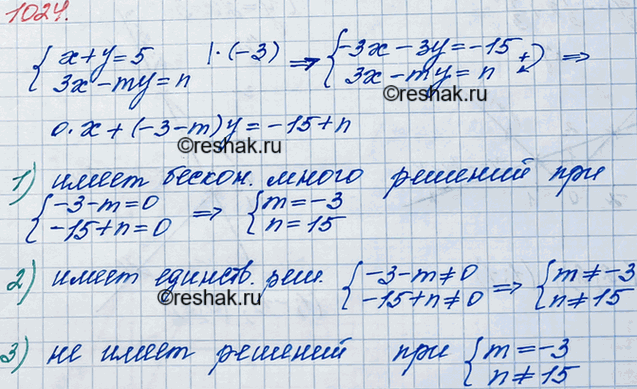 1024.
{ x+y=5 |·(-3) ⇒ { -3x-3y=-15
{ 3x-my=n { 3x-my=n + ⇒
©reshak.ru
0·x+(-3-m)y=-15+n
©reshak.ru
1) имеет бескон. много решений при
{ -3-m=0 ⇒ { m=-3
{ -15+n=0 { n=15
©reshak.ru
2) имеет единств. реш. { -3-m≠0 ⇒ { m≠-3
{ -15+n≠0 { n≠15
©reshak.ru
3) не имеет решений при { m=-3
{ n≠15